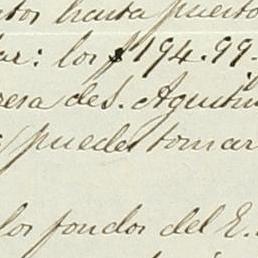 tos hasta puerto
ar: los $194.99-
resa de S. Agustin
puedes tomar
los fondos del E.